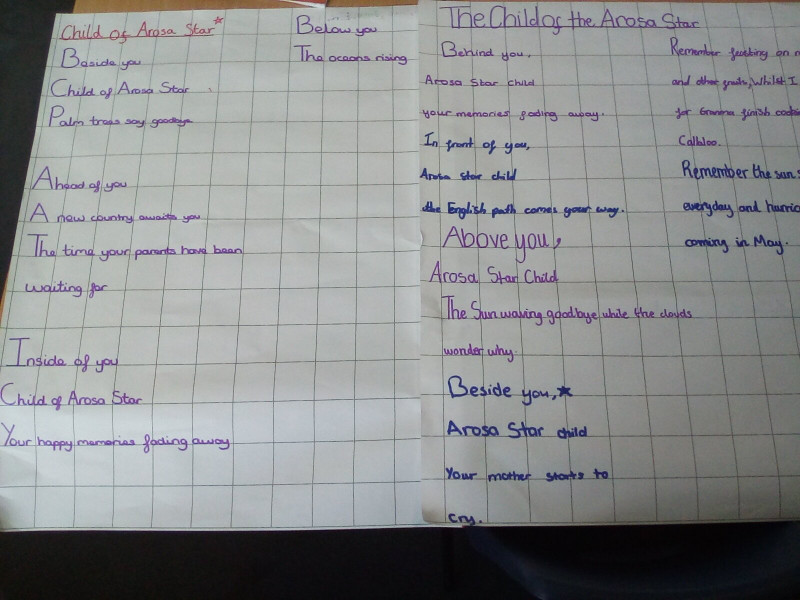 Child of Arosa Star*
Beside you
Child of Arosa Star
Palm trees say goodbye
Ahead of you
A new country awaits you
The time your parents have been
waiting for
Inside of you
Child of Arosa Star
Your happy memories fading away
Below you
The oceans rising
The Child of the Arosa Star
Behind you,
Arosa Star child
your memories fading away.
In front of you,
Arosa star child
the English path comes your way.
Above you,
Arosa Star Child
The Sun waving goodbye while the clouds
wonder why.
Beside you,★
Arosa Star child
Your mother starts to
cry.
Remember feasting on
and other fruits, Whilst I
for Gramma finish
Callaloo.
Remember the sun
everyday and
coming in May.